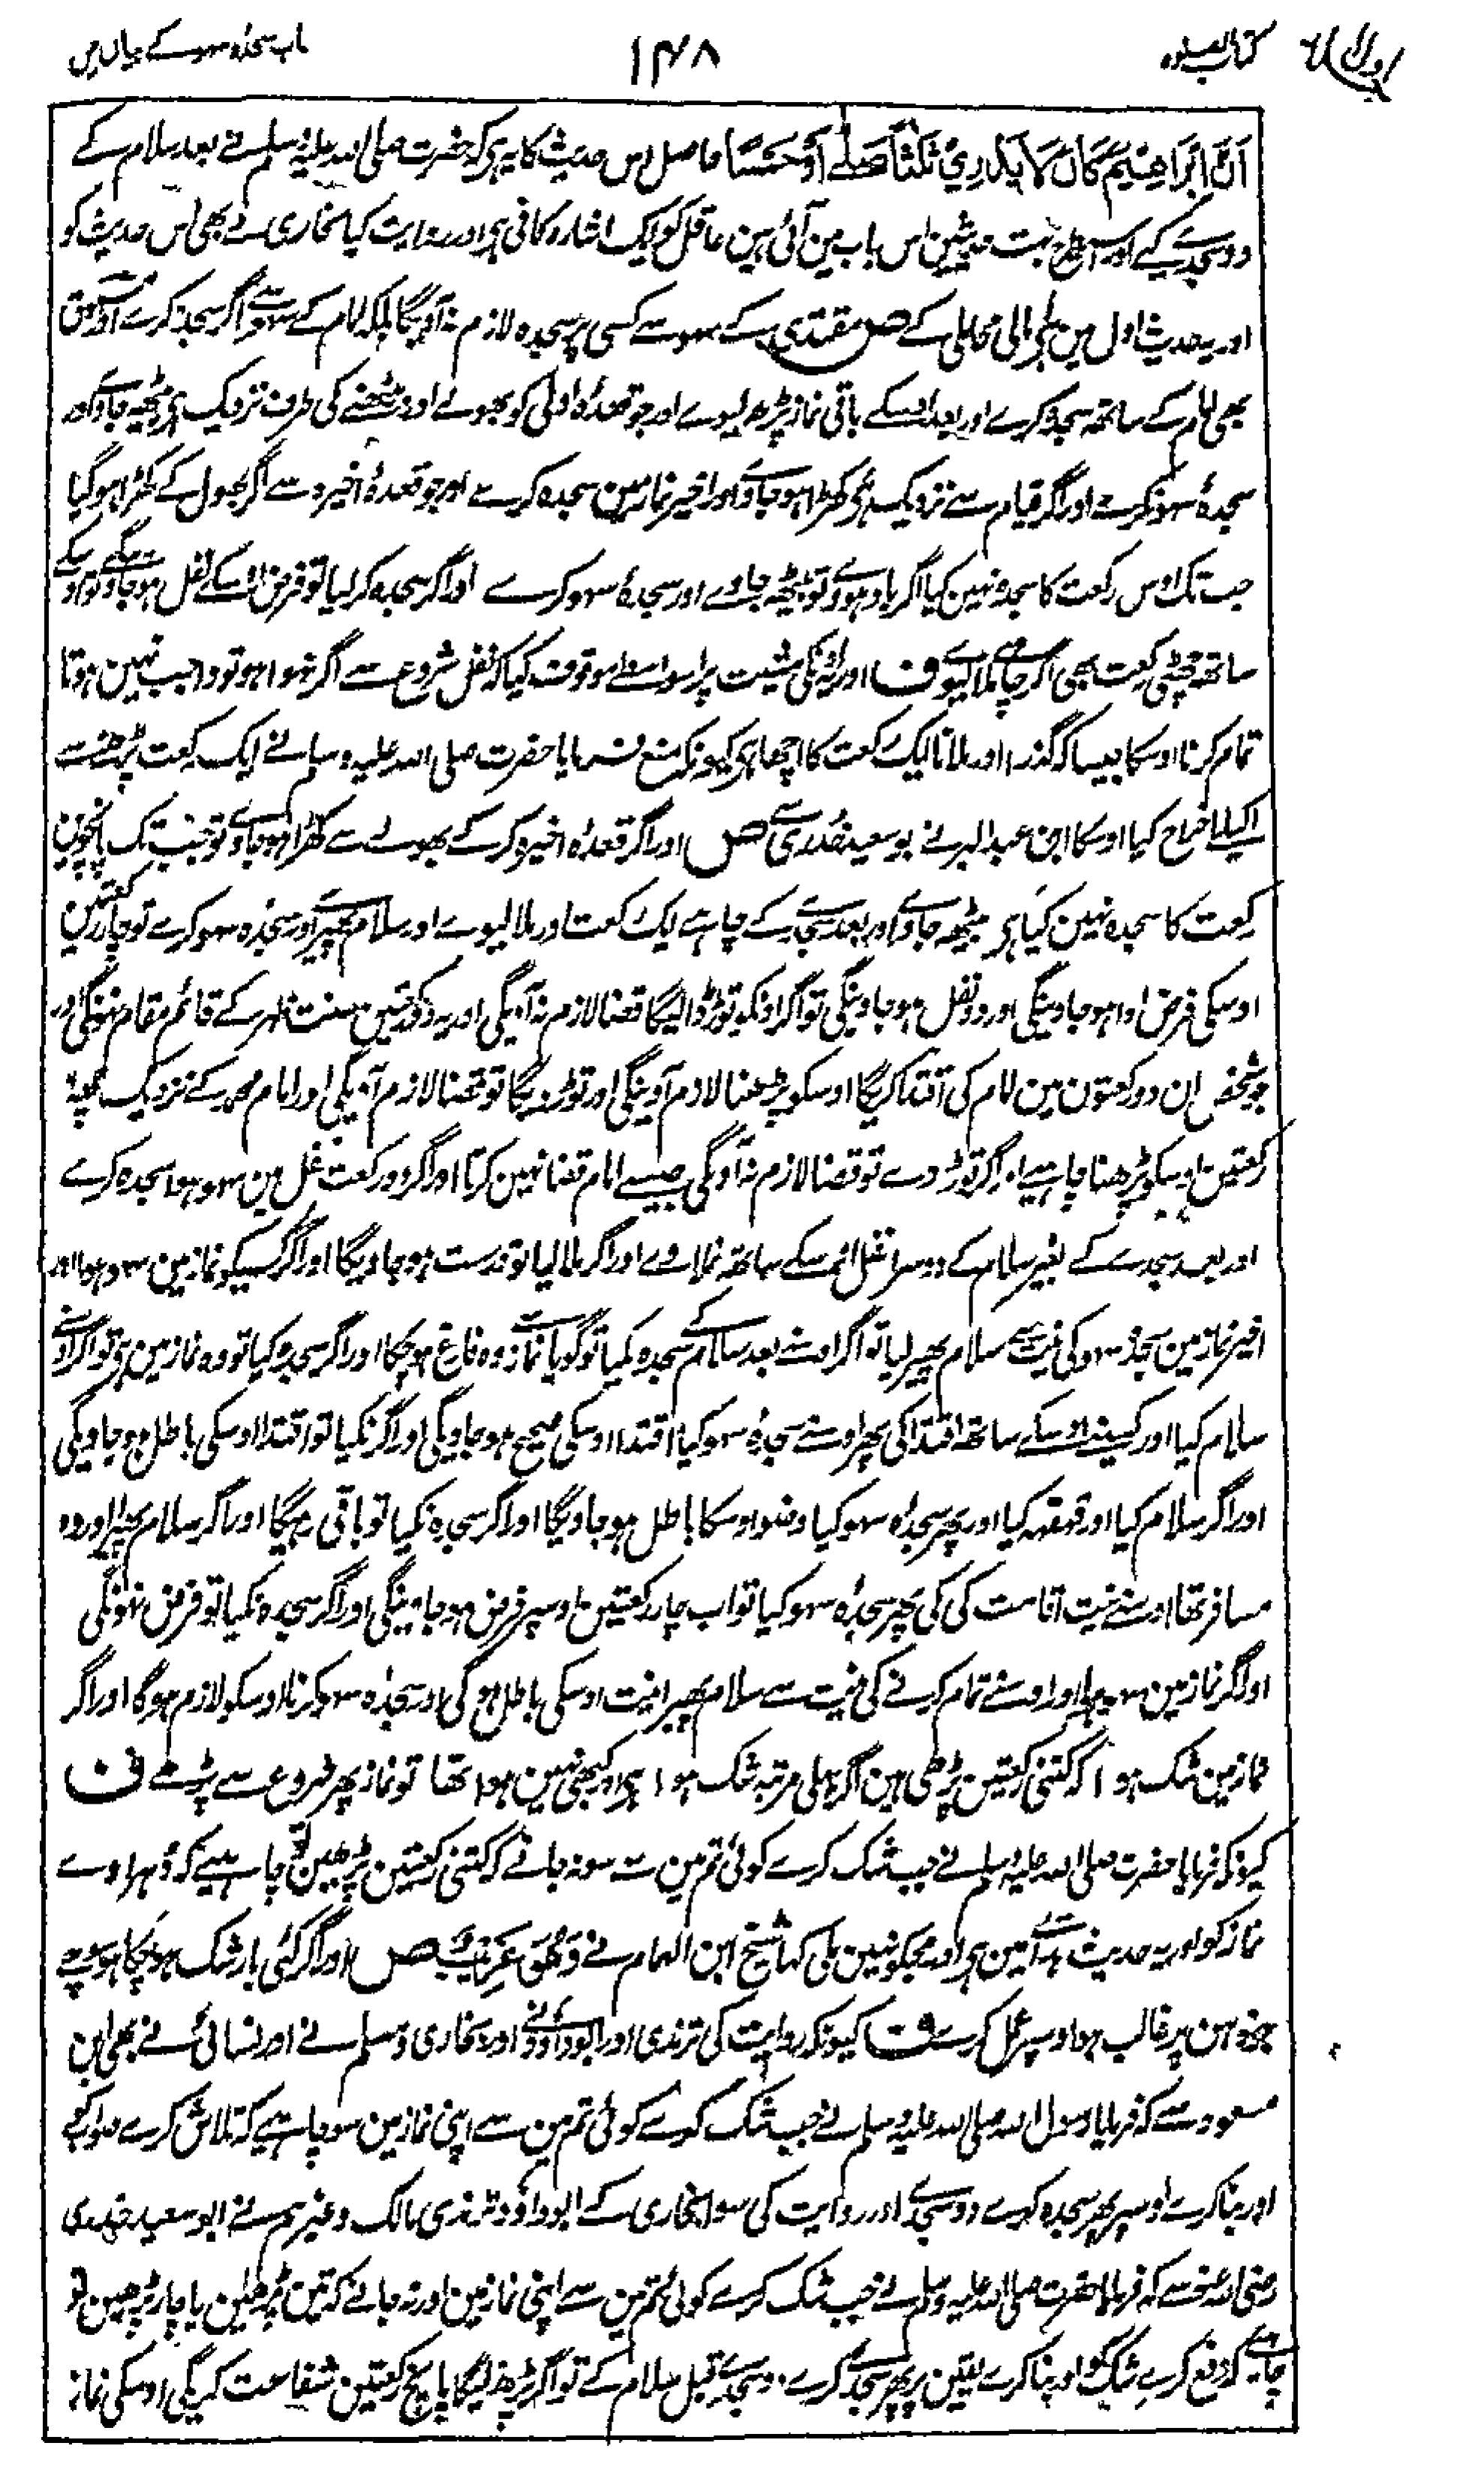 کتاب الصلوۃ
۱۴۸
باب سجدہ سہو کے بیاں میں
اَنَّ اِبْرَاهِيْمَ قَالَ لَا يَدْرِيْ ثَلٰثًا صَلّٰے اَوْ خَمْسًا حاصل اس حدیث کا یہ ہی کہ حضرت صلی اللہ علیہ وسلم نے بعد سلام کے
دو سجدے کیے اور اسی طرح بہت حدیثین اس باب مین آئی ہین عاقل کو ایک اشارہ کافی ہی اور روایت کیا بخاری نے بھی اس حدیث کو
اور یہ حدیث اول مین کے ص مقتدی کے سہو سے کسی پر سجدہ لازم نہ آویگا بلکہ امام کے سہو سے اگر سجدہ کرے اور مسبوق
بھی امام کے ساتھ سجدہ کرے اور بعد اسکے باقی نماز پڑھ لیوے اور جو قعدۂ اولی کو بھولے اور بیٹھنے کی طرف نزدیک ہی بیٹھ جاوے اور
سجدۂ سہو نکرے اور اگر قیام سے نزدیک ہی کھڑا ہو جاوے اور اخیر نماز مین سجدہ کرے اور جو قعدۂ اخیرہ سے اگر بھول کے کھڑا ہو گیا
جب تک اوس رکعت کا سجدہ نہین کیا اگر یاد ہووے تو بیٹھ جاوے اور سجدۂ سہو کرے اور اگر سجدہ کر لیا تو فرض اوسکے نفل ہو جاوینگے تو اوسکے
ساتھ چھٹی رکعت بھی اگر چاہے ملا لیوے ف اور اوسکی مشیت پر اسواسطے موقوف کیا کہ نفل شروع سے اگر نہوا ہو تو واجب نہین ہوتا
تمام کرنا اوسکا جیسا کہ گذرا اور ملانا ایک رکعت کا اچھا ہی کیونکہ منع فرمایا حضرت صلی اللہ علیہ وسلم نے ایک رکعت پڑھنے سے
اکیلے اخراج کیا اوسکا ابن عبدالبر نے بو سعید خدری سے ص اور اگر قعدۂ اخیرہ کر کے بھولے سے کھڑا ہو جاوے تو جب تک پانچوین
رکعت کا سجدہ نہین کیا ہی بیٹھ جاوے اور بعد سجدے کے چاہے ایک رکعت اور ملا لیوے اور سلام پھیرے اور سجدہ سہو کرے تو چار رکعتین
اوسکی فرض ادا ہو جاوینگی اور دو نفل ہو جاوینگی تو اگر اونکو توڑ ڈالیگا قضا لازم نہ آویگی اور یہ دو رکعتین سنت ظہر کے قائم مقام نہونگی اور
جو شخص ان دو رکعتون مین امام کی اقتدا کریگا اوسکو پڑھنا لازم آوینگی اور توڑ دیگا تو قضا لازم آویگی اور امام محمد کے نزدیک چھ
رکعتین اوسکو پڑھنا چاہیے اور اگر توڑ دے تو قضا لازم نہ آویگی جیسے امام قضا نہین کرتا اور اگر دو رکعت نفل مین سہو ہوا سجدہ کرے
اور بعد سجدے کے بغیر سلام کے دوسرا نفل اوسکے ساتھ نملاوے اور اگر ملا لیا تو درست ہو جاویگا اور اگر کسیکو نماز مین سہو ہوا اور
اخیر نماز مین سجدۂ سہو کی نیت سے سلام پھیر لیا تو اگر اوسنے بعد سلام کے سجدہ نکیا تو گویا نماز سے وہ فارغ ہو چکا اور اگر سجدہ کیا تو وہ نماز مین ہی تو اگر اوسنے
سلام کیا اور کسینے اوسکے ساتھ اقتدا کی پھر اوسنے سجدۂ سہو کیا اقتدا اوسکی صحیح ہو جاویگی اور اگر نکیا تو اقتدا اوسکی باطل ہو جاویگی
اور اگر سلام کیا اور قہقہہ کیا اور پھر سجدۂ سہو کیا وضو اوسکا باطل ہو جاویگا اور اگر سجدہ نکیا تو باقی رہیگا اور اگر سلام پھیرا اور وہ
مسافر تھا اوسنے نیت اقامت کی کی پھر سجدۂ سہو کیا تو اب چار رکعتین اوسپر فرض ہو جاوینگی اور اگر سجدہ نکیا تو فرض نہونگی
اور اگر نماز مین سہو ہوا اور اوسنے تمام کرنے کی نیت سے سلام پھیرا نیت اوسکی باطل ہوگی اور سجدۂ سہو کرنا اوسکو لازم ہوگا اور اگر
نماز مین شک ہوا کہ کتنی رکعتین پڑھی ہین اگر پہلی مرتبہ شک ہوا ہی اور کبھی نہین ہوا تھا تو نماز پھر شروع سے پڑھے ف
کیونکہ فرمایا حضرت صلی اللہ علیہ وسلم نے جب شک کرے کوئی تم مین سے سو نہ جانے کہ کتنی رکعتین پڑھین تو چاہیے کہ دُہراوے
نماز کو اور یہ حدیث ہدایے مین ہی اور مجکو نہین ملی کہا شیخ ابن الہمام نے وَهُوَ غَرِيْبٌ ص اور اگر کئی بار شک ہو چکا ہووے
جو ذہن پر غالب ہو اوسپر عمل کرے ف کیونکہ روایت کی ترمذی اور ابو داؤد نے اور بخاری و مسلم نے اور نسائی نے بھی ابن
مسعود سے کہ فرمایا رسول اللہ صلی اللہ علیہ وسلم نے جب شک کرے کوئی تم مین سے اپنی نماز مین سو چاہیے کہ تلاش کرے صواب کو
اور بنا کرے اوسپر پھر سجدہ کرے دو سجدے اور روایت کی سوا بخاری کے ابو داؤد ترمذی مالک وغیرہم نے ابو سعید خدری
رضی اللہ عنہ سے کہ فرمایا حضرت صلی اللہ علیہ وسلم نے جب شک کرے کوئی تم مین سے اپنی نماز مین اور نہ جانے کہ تین پڑھین یا چار پڑھین تو
چاہیے کہ دفع کرے شک کو اور بنا کرے یقین پر پھر سجدے کرے دو سجدے قبل سلام کے تو اگر پڑھ لیگا پانچ رکعتین شفاعت کرینگی اوسکی نماز